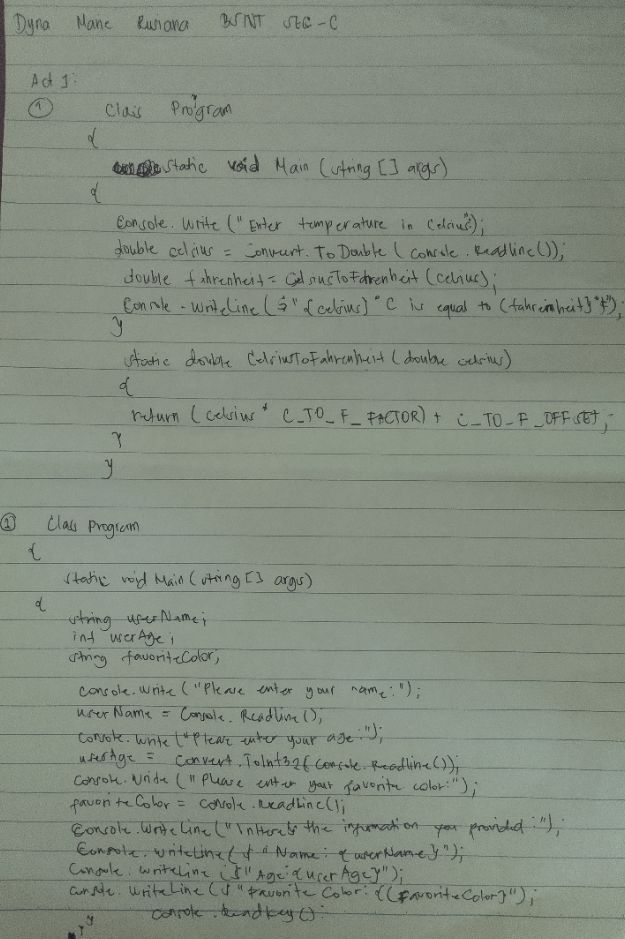 Dyna Marie Rusiana BSNT SEG-C
Act 1:
① Class Program
{
static void Main (string [] args)
{
Console. Write ("Enter temperature in Celsius");
double celsius = Convert. To Double ( console . Readline());
double fahrenheit = CelsiusToFahrenheit (celsius);
Console . WriteLine ( $ " {celsius} ° C is equal to {fahrenheit} °F");
}
static double CelsiusToFahrenheit ( double celsius)
{
return ( celsius * C_TO_F_ FACTOR) + C_TO_F_OFFSET;
}
}
② Class Program
{
static void Main ( string [] args)
{
string userName;
int userAge;
string favoriteColor;
console. write ( "Please enter your name:" );
userName = Console. Readline();
Console. Write ("Please enter your age:");
userAge = Convert. ToInt32( Console. Readline());
Console. Write ( "Please enter your favorite color:");
favoriteColor = console. Readline();
Console. WriteLine ( "\n the information you provided:");
Console. writeLine( $ " Name: {userName}");
Console. writeline ($"Age: {userAge}");
console. WriteLine ( $ " Favorite Color: {(FavoriteColor}");
console. Readkey();
}
}